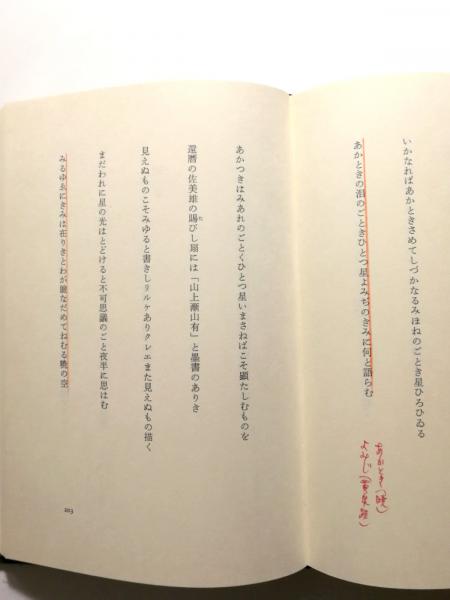 いかなればあかときさめてしづかなるみほねのごとき星ひろひゐる
あかときの泪のごときひとつ星よみぢのきみに何と語らむ
あかとき(暁)
よみじ(黄泉路)
あかつきはみあれのごとくひとつ星いまさねばこそ顕たしむものを
還暦の佐美雄の賜びし扇には「山上漸山有」と墨書のありき
た
見えぬものこそみゆると書きしリルケありクレエまた見えぬもの描く
まだわれに星の光はとどけると不可思議のごと夜半に思はむ
みるゆゑにきみは在りきとわが瞳なだめてねむる暁の空
203